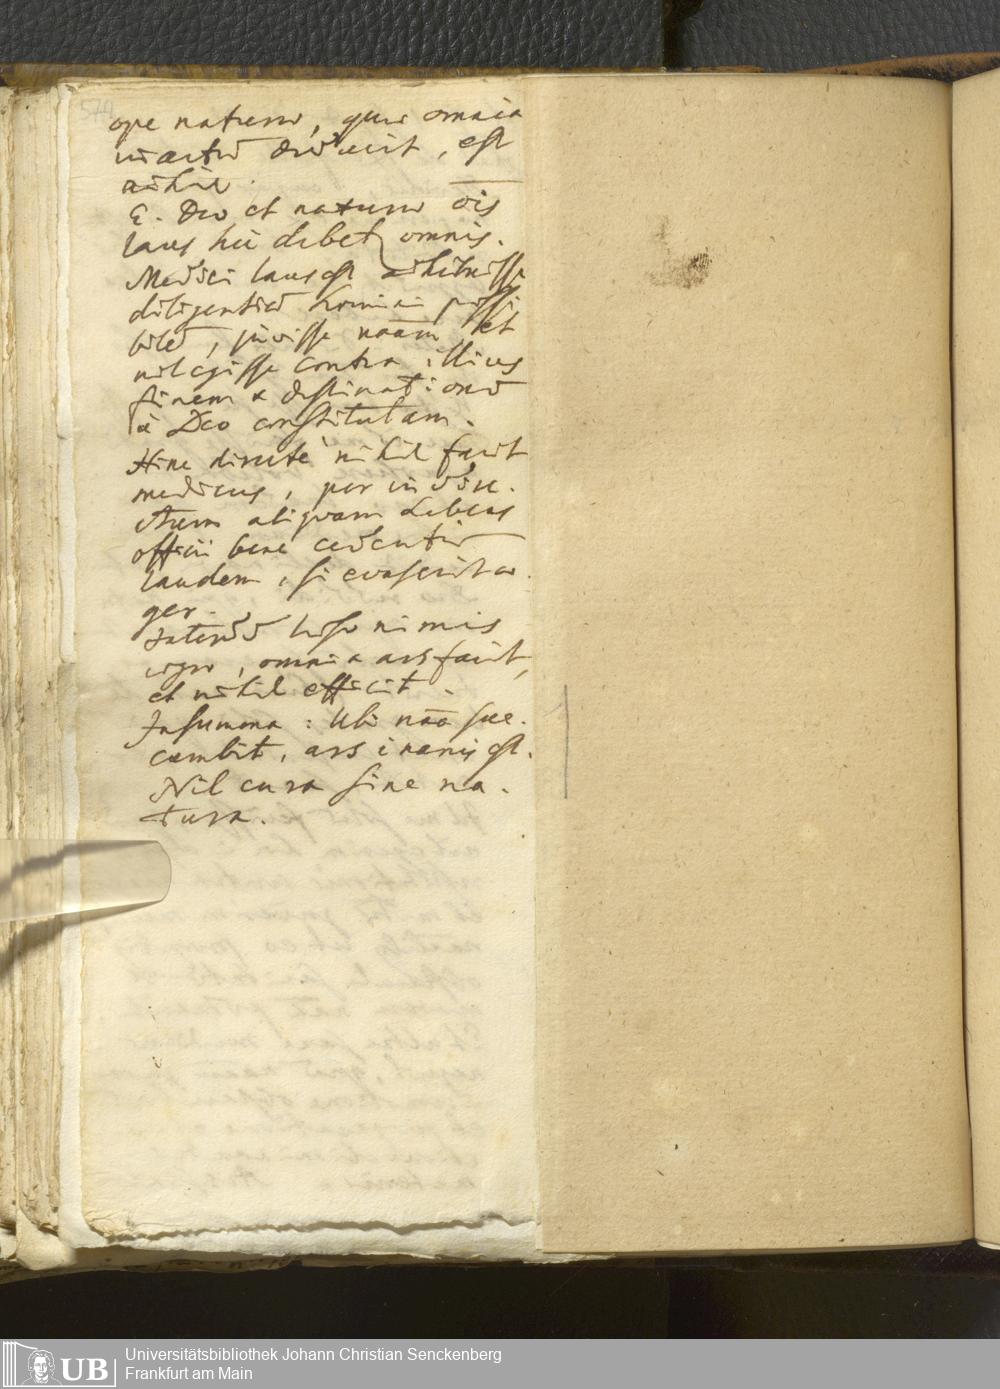 574
ope naturæ, quæ omnia
in actū dedūcit, est
nihil.
E. Deo et naturæ ōis
laus hīc debet~ omnis.
Medici laus est adhibuisse
diligentiā homini possi
bilē, juvisse naām et
nil egisse contra illius
finem & destinationē
à Deo constitutam.
Hinc directè nihil facit
medicus, per indire.
ctum aliquam debeas
officii benè
laudem, si evaserit æ.
ger.
Interdū læso nimis
ægro, omnia ars facit,
et nihil efficit.
In summa: Ubi nāa suc.
cumbit, ars inanis est.
Nil cura sine na.
tura.
UB
Universitätsbibliothek Johann Christian Senckenberg
Frankfurt am Main